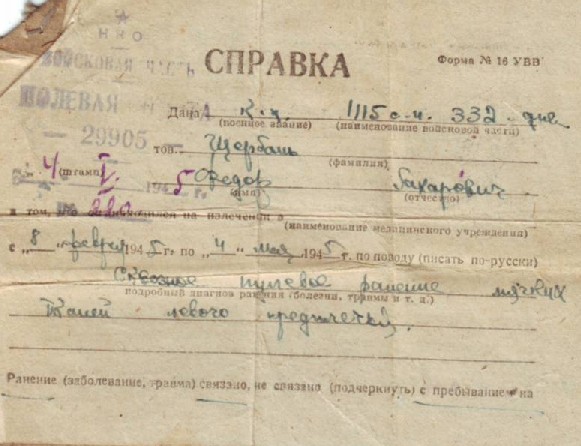 НКО
ВОЙСКОВАЯ ЧАСТЬ
ПОЛЕВАЯ
— 29905 —
СПРАВКА
Форма № 16 УВВ
Дана к. 1115 с.п. 332 див
(военное звание) (наименование войсковой части)
тов. Щербань
(фамилия)
"4" (штамп) V 1945 г. Федор Захарович
(имя) (отчество)
в том, что находился на излечении в
(наименование медицинского учреждения)
с „8" февраля 1945 г. по „4" мая 1945 г. по поводу (писать по-русски)
Сквозное пулевое ранение мягких
подробный диагноз ранения (болезни, травмы и т. д.)
тканей левого предплечья.
Ранение (заболевание, травма) связано, не связано (подчеркнуть) с пребыванием на